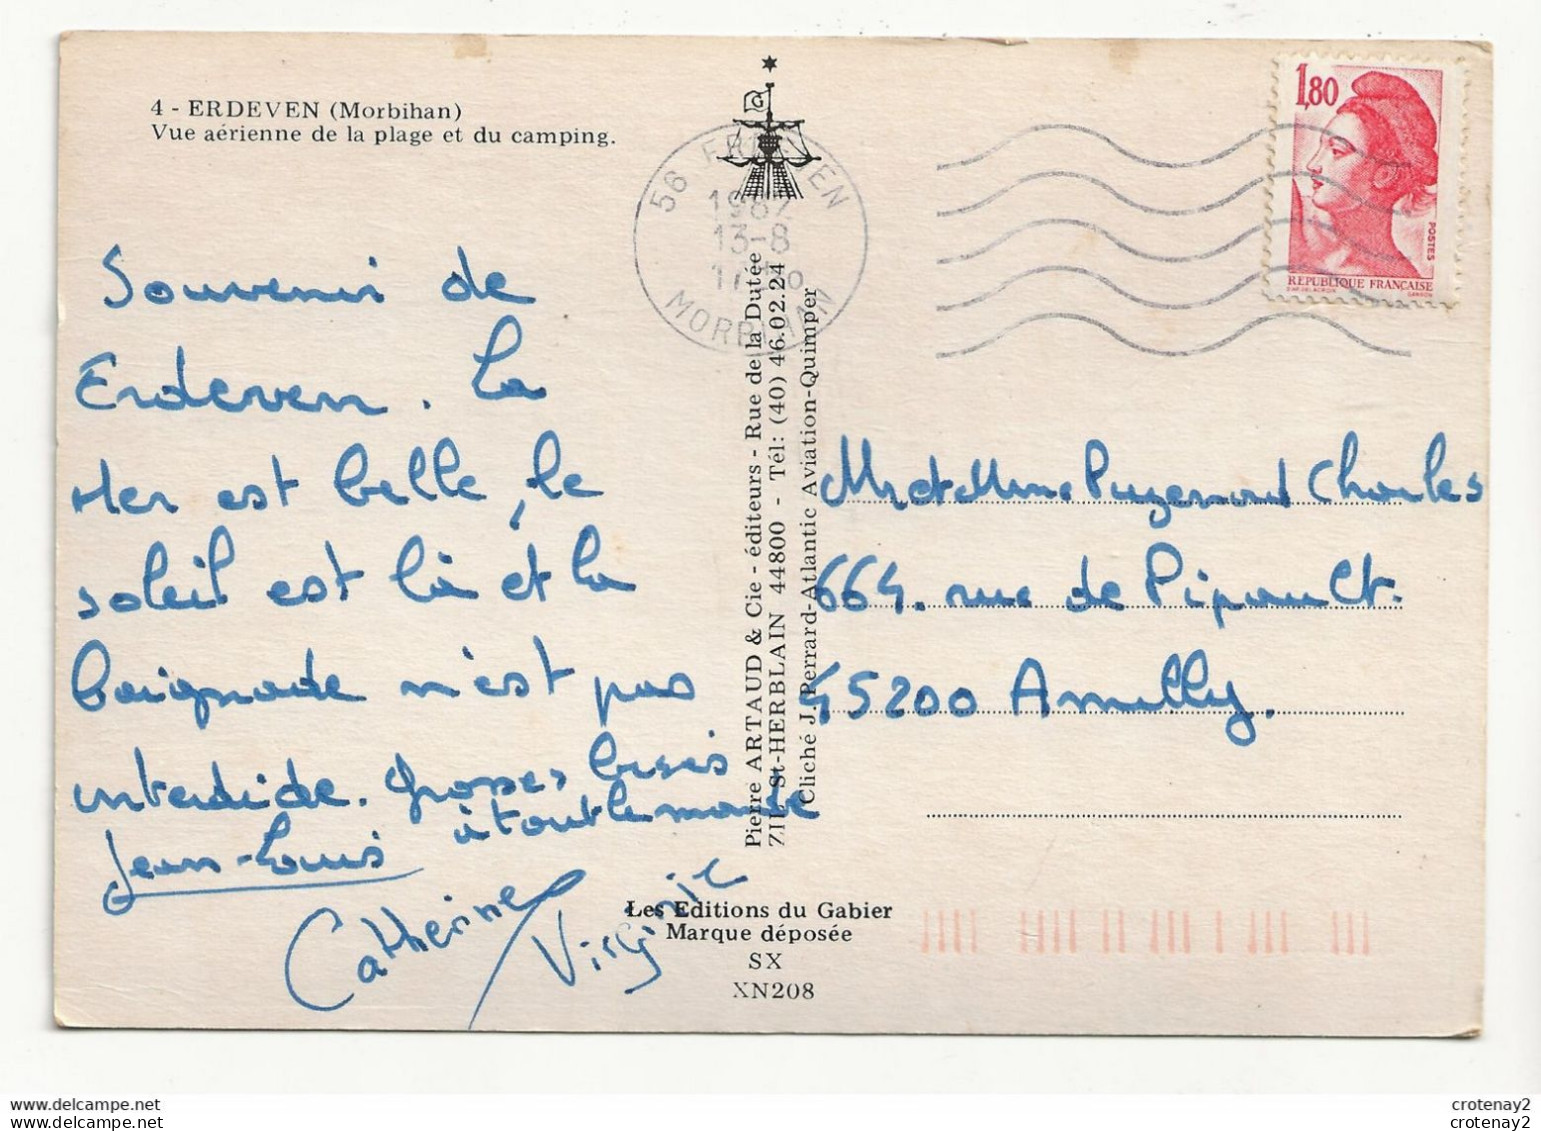 4 - ERDEVEN (Morbihan)
Vue aérienne de la plage et du camping.
56 ERDEVEN
1982
13-8
MORBIHAN
1,80
POSTES
REPUBLIQUE FRANÇAISE
D'AP. DELACROIX GANDON
Souvenir de
Erdeven. La
Mer est belle, le
soleil est là et la
baignade n'est pas
interdide. Grosses bises
à tout le monde
Jean-Louis
Catherine Virginie
Pierre ARTAUD & Cie - éditeurs - Rue de la Dutée
St-HERBLAIN 44800 - Tél: (40) 46.02.24
Cliché J. Perrard-Atlantic Aviation-Quimper
Mr et Mme Charles
664. rue de Pipault.
45200 Amilly.
Les Editions du Gabier
Marque déposée
SX
XN208
crotenay2
crotenay2
crotenay2
crotenay2